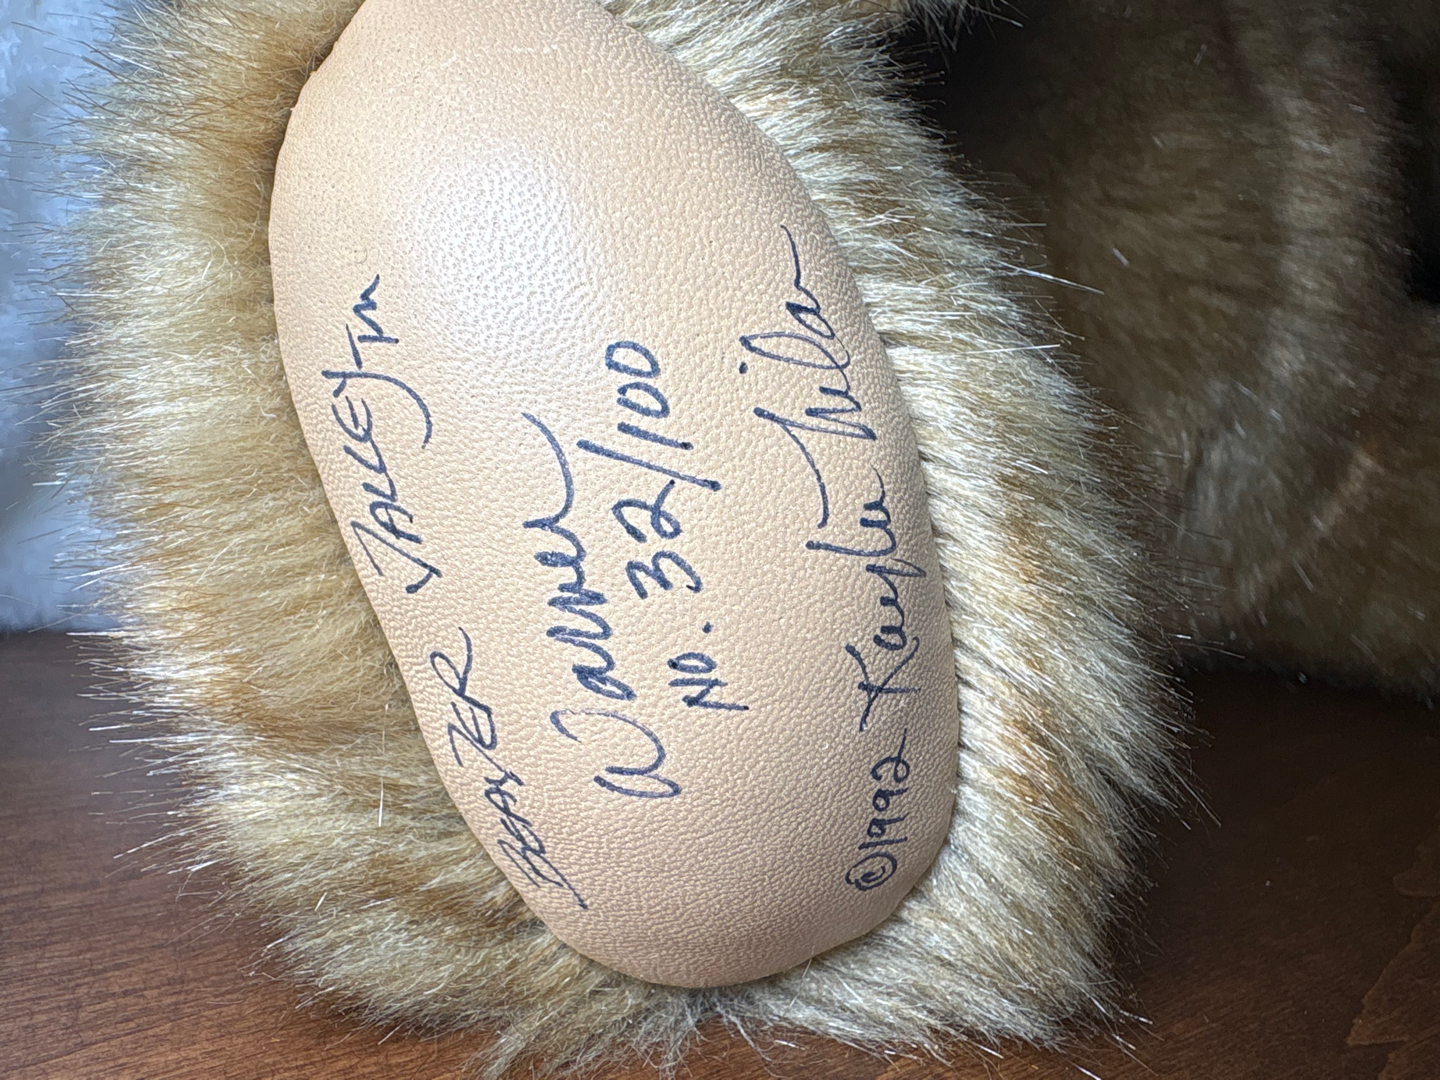 BEASTER VALLEY TM
Warner
No. 32/100
©1992 Kaylee Nilan